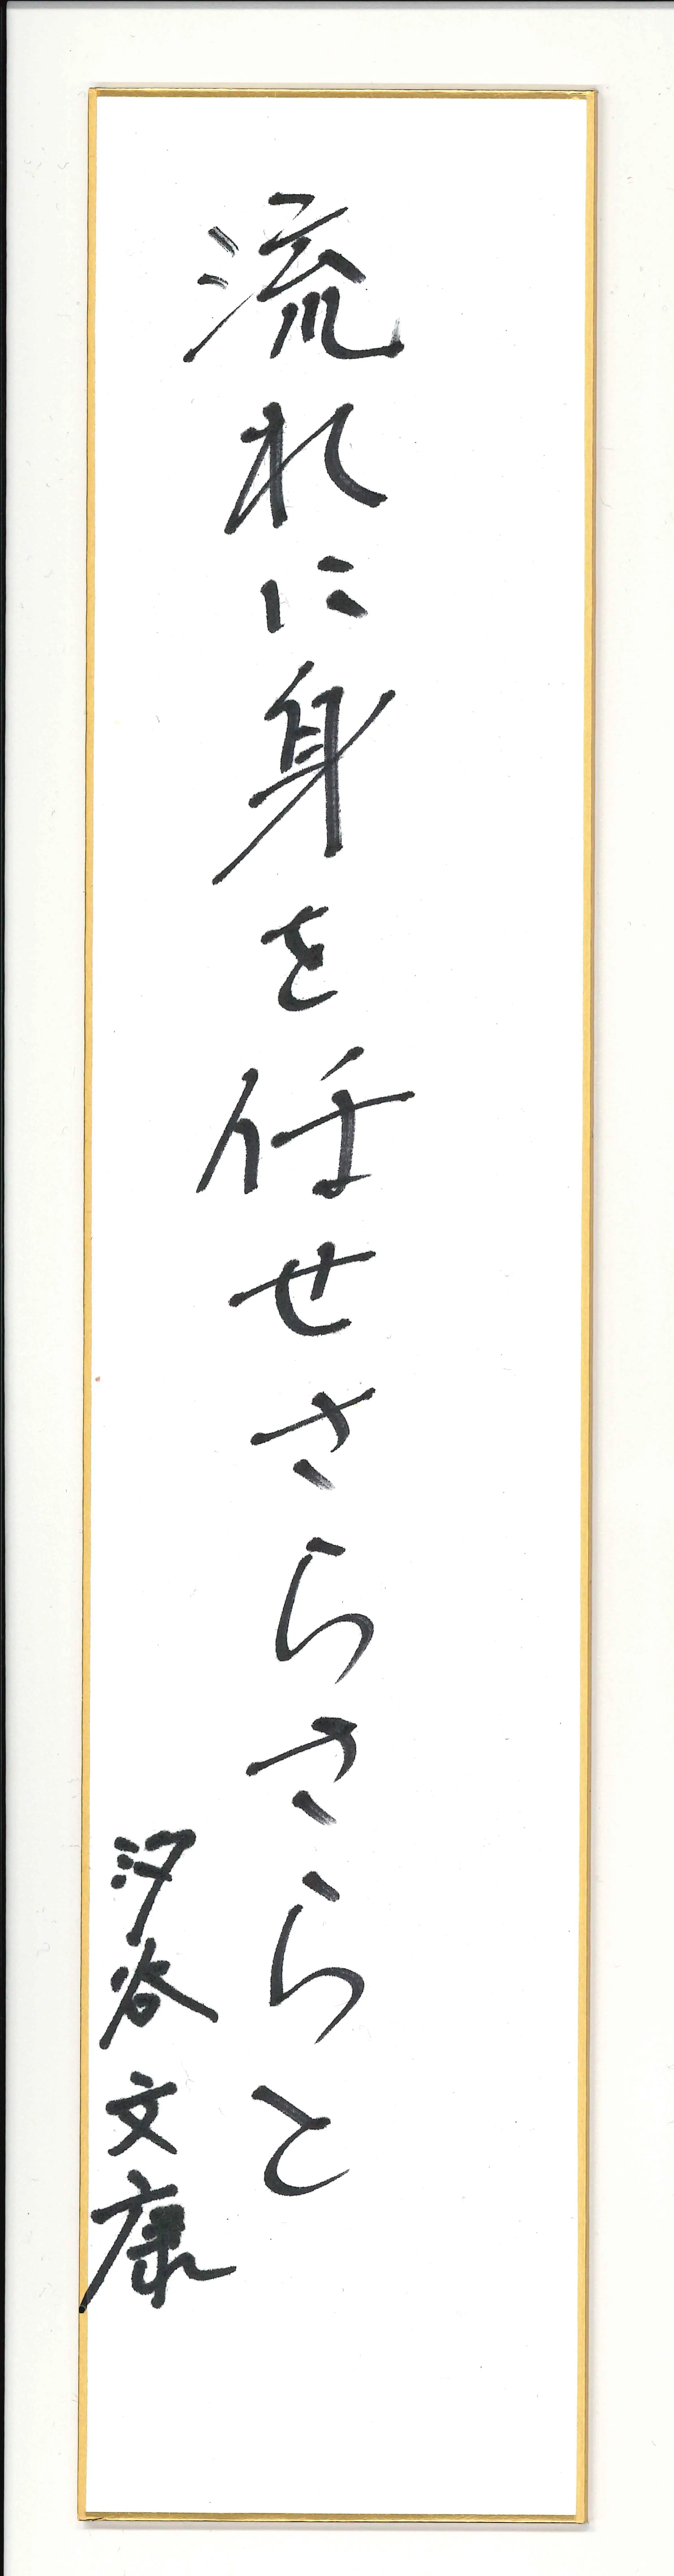 流れに身を任せさらさらと
汐谷文康